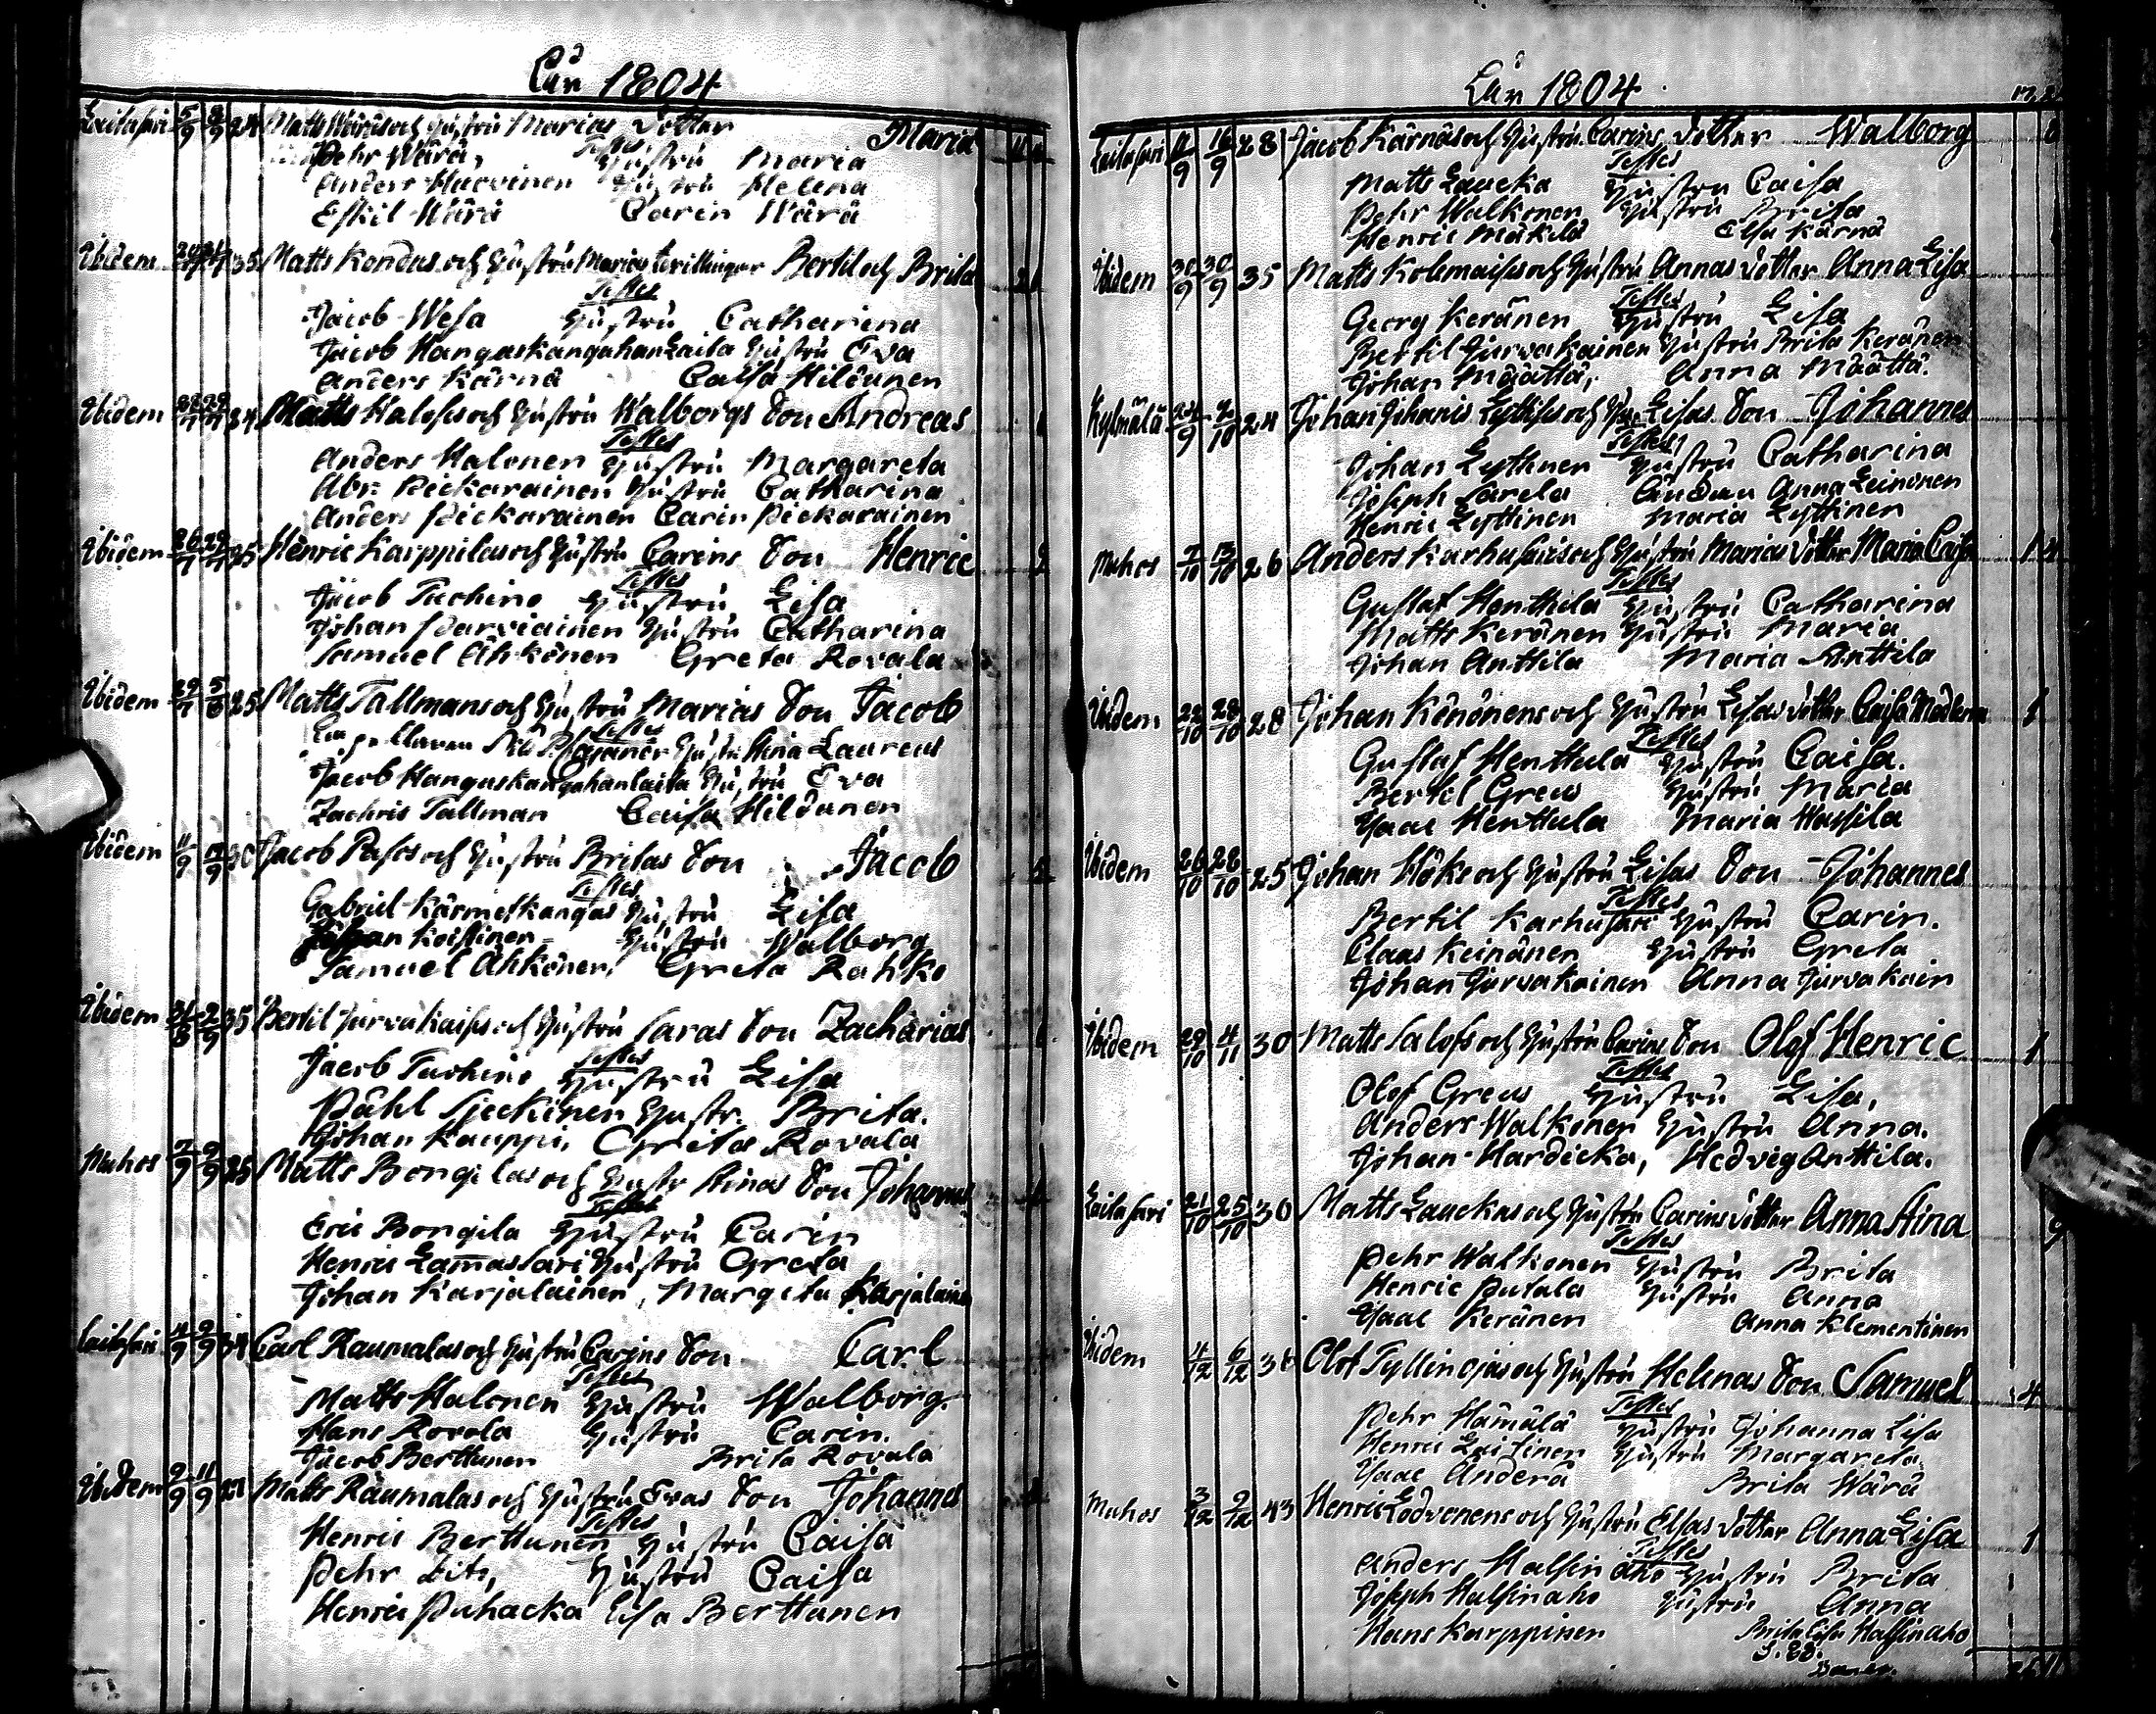 År 1804
Laitasari 5/9 8/9 24 Matts Wäräs och Hustru Marias Dotter Maria
Testes
Pehr Wärä, Hustru Maria
Anders Hurvinen Hustru Helena
Eskil Wärä Carin Wärä
Ibidem 35 Matts Kondas och Hustru Marias tvillingar Bertil och Brita
Testes
Jacob Wesa Hustru Catharina
Jacob Hangaskangahanlaita Hustru Eva
Anders Kärnä Caisa Hildunen
Ibidem 34 Matts Halosis och Hustru Walborgs Son Andreas
Testes
Anders Halonen Hustru Margareta
Abr: Pickarainen Hustru Catharina
Anders Pickarainen Carin Pickarainen
Ibidem 25 Henric Karppilas och Hustru Carins Son Henric
Testes
Jacob Tuchino Hustru Lisa
Johan Parviainen Hustru Catharina
Samuel Ahkonen Greta Rovala
Ibidem 25 Matts Tallmans och Hustru Marias Son Jacob
Testes
Hustr: Stina Laurens
Jacob Hangaskangahanlaita Hustru Eva
Zachris Tallman Caisa Hildunen
Ibidem 30 Jacob Pasos och Hustru Britas Son Jacob
Testes
Gabriel Kärmeskangas Hustru Lisa
Johan Koistinen Hustru Walborg
Samuel Ahkonen, Greta Rahko
Ibidem 35 Bertil Jurvakaisis och Hustru Saras Son Zacharias
Testes
Jacob Tuohino Hustru Lisa
Påhl Sjeckinen Hustr: Brita.
Johan Kauppi, Greta Rovala
Muhos 7/9 9/9 25 Matts Bongilas och Hustr Stinas Son Johannes
Testes
Eric Bongila Hustru Carin
Henric Lamassari Hustru Greta
Johan Karjalainen, Margeta Karjalain
Laitasari 4/9 9/9 34 Carl Raumalas och Hustru Carins Son Carl
Testes
Matts Halonen Hustru Walborg.
Hans Rovola Hustru Carin.
Jacob Berttunen Brita Rovala
Ibidem 9/9 11/9 27 Matts Räumalas och Hustru Evas Son Johannes
Testes
Henric Berttunen Hustru Caisa
Pehr dito, Hustru Caisa
Henric Puhacka Lisa Berttunen
År 1804
Laitasari 11/9 16/9 28 Jacob Kärnäs och Hustru Carins Dotter Walborg
Testes
Matts Laucka Hustru Caisa
Pehr Walkonen Hustru Brita
Henric Mäkelä Elsa Kärnä
Ibidem 30/9 30/9 35 Matts Kolemaisis och Hustru Annas Dotter Anna Lisa
Testes
Georg Keränen Hustru Lisa
Bertil Jurvakainen Hustru Brita Keränen
Johan Määttä, Anna Määttä.
Kylmälä 24 Johan Johanis Lyttisis och Hustr: Lisas Son Johannes
Testes
Johan Lyttinen Hustru Catharina
Joseph Sarela Änckan Anna Leinonen
Henric Lyttinen Maria Lyttinen
Muhos 7/10 13/10 26 Anders Karhusaris och Hustru Marias Dotter Maria Caisa
Testes
Gustaf Henttula Hustru Catharina
Matts Keränen Hustru Maria
Johan Anttila Maria Anttila
Ibidem 22/10 28/10 28 Johan Könönens och Hustru Lisas dotter Caisa Madlena
Testes
Gustaf Henttula Hustru Caisa.
Bertil Greus Hustru Maria
Isaac Henttula Maria Hassila
Ibidem 26/10 28/10 25 Johan Höks och Hustru Lisas Son Johannes
Testes
Bertil Karhusari Hustru Carin.
Claas Keinänen Hustru Greta
Johan Jurvakainen Anna Jurvakain
Ibidem 29/10 4/11 30 Matts Salosis och Hustru Carins Son Olof Henric
Testes
Olof Greus Hustru Lisa,
Anders Walkonen Hustru Anna.
Johan Hardicka, Hedvig Anttila.
Laitasari 21/10 25/10 30 Matts Lauckas och Hustru Carins dotter Anna Stina
Testes
Pehr Walkonen Hustru Brita
Henric Putala Hustru Anna
Isaac Keränen Anna Klementinen
Ibidem 4/12 6/12 Olof Tyllinojas och Hustru Helenas Son Samuel
Testes
Pehr Hämälä Hustru Johanna Lisa
Henric Laitinen Hustru Margareta
Isaac Anderä Brita Wärä
Muhos 3/12 9/12 43 Henric Lodvonens och Hustru Elsas Dotter Anna Lisa
Testes
Anders Halsinaho Hustru Brita
Joseph Halsinaho Hustru Anna
Hans Karppinen Brita Lisa Halsinaho